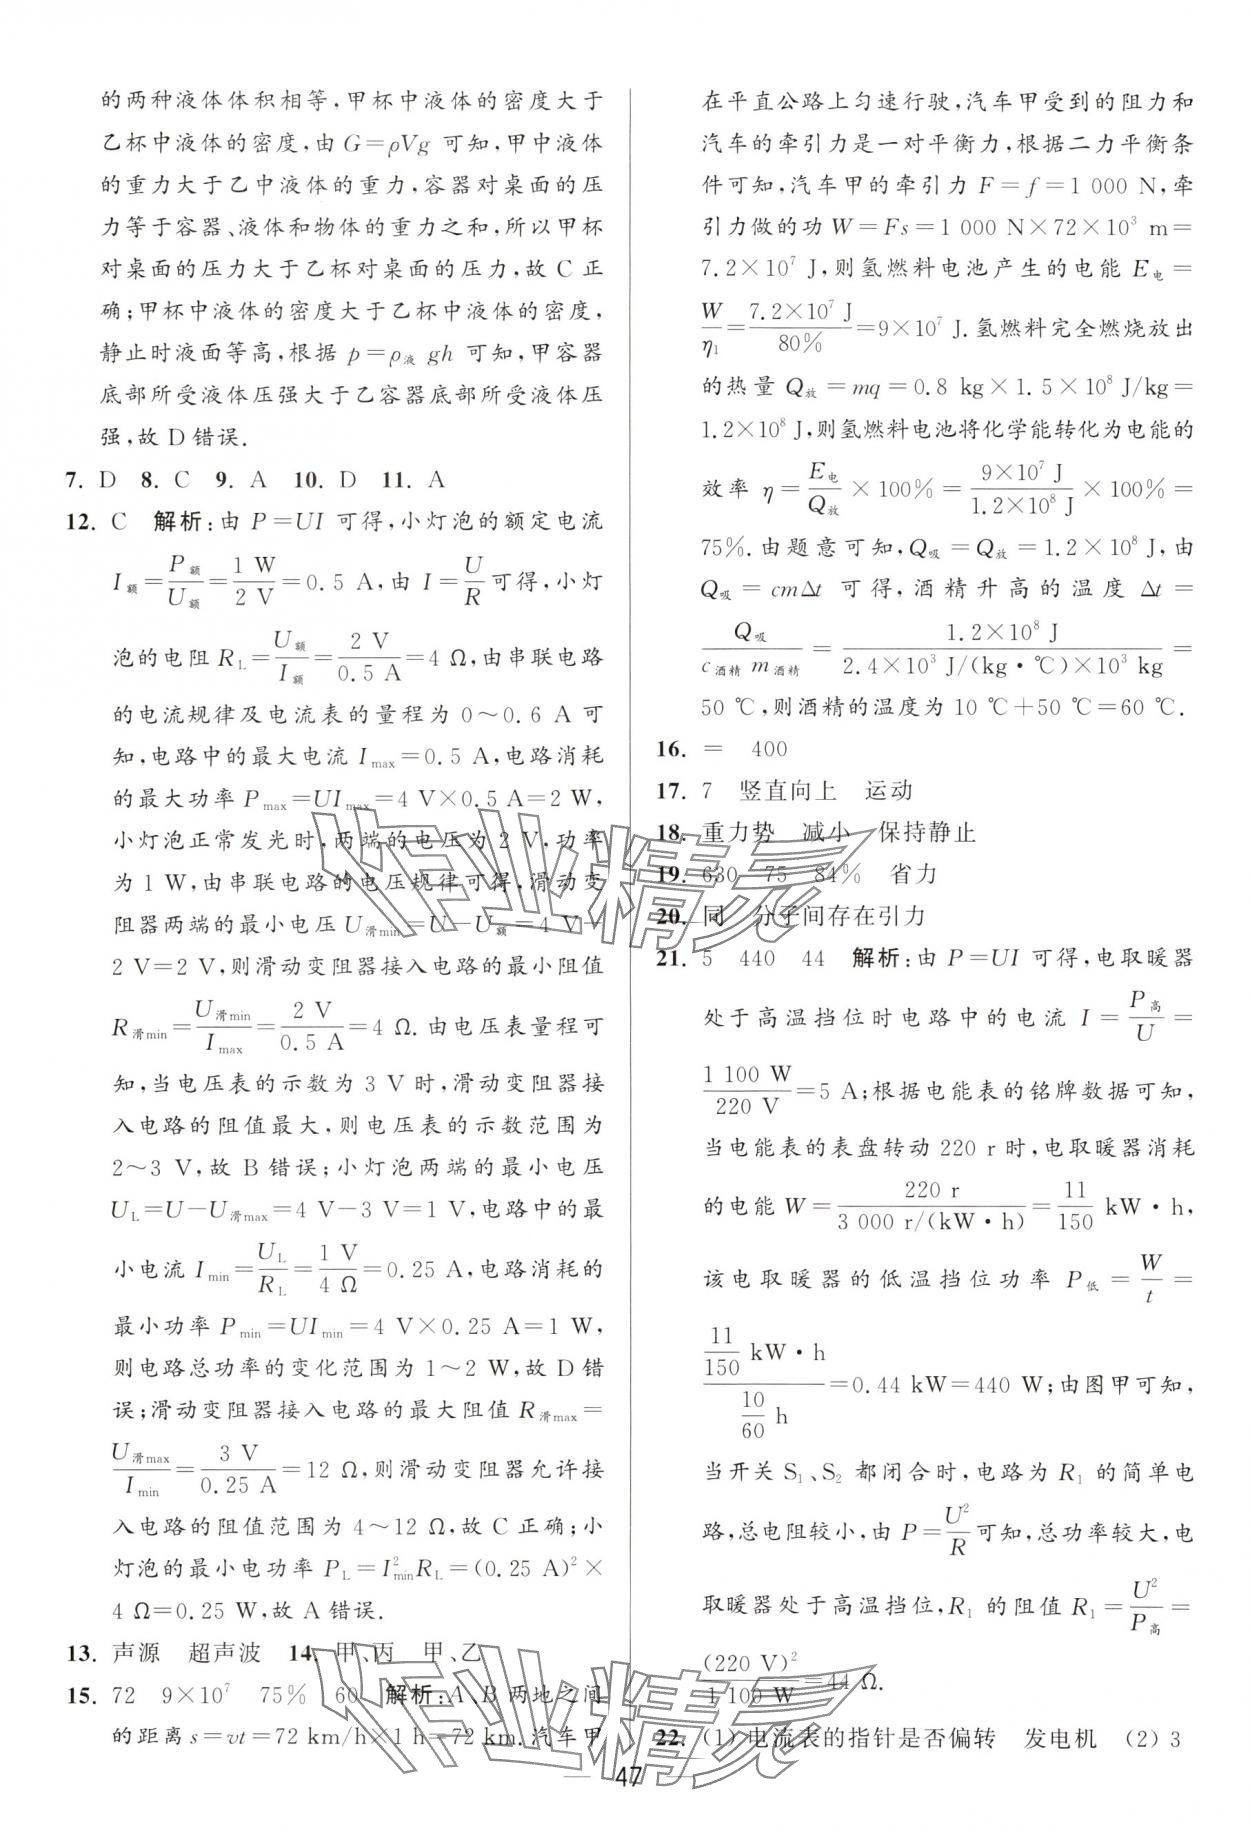 的两种液体体积相等，甲杯中液体的密度大于
乙杯中液体的密度，由 G＝ρVg 可知，甲中液体
的重力大于乙中液体的重力，容器对桌面的压
力等于容器、液体和物体的重力之和，所以甲杯
对桌面的压力大于乙杯对桌面的压力，故 C 正
确；甲杯中液体的密度大于乙杯中液体的密度，
静止时液面等高，根据 p＝ρ液 gh 可知，甲容器
底部所受液体压强大于乙容器底部所受液体压
强，故 D 错误.
7. D 8. C 9. A 10. D 11. A
12. C 解析：由 P＝UI 可得，小灯泡的额定电流
I额＝P额/U额＝1 W/2 V＝0.5 A，由 I＝U/R 可得，小灯
泡的电阻 R_L＝U额/I额＝2 V/0.5 A＝4 Ω，由串联电路
的电流规律及电流表的量程为 0～0.6 A 可
知，电路中的最大电流 I_max＝0.5 A，电路消耗
的最大功率 P_max＝UI_max＝4 V×0.5 A＝2 W，
小灯泡正常发光时，两端的电压为 2 V，功率
为 1 W，由串联电路的电压规律可得，滑动变
阻器两端的最小电压 U滑min＝U－U额＝4 V－
2 V＝2 V，则滑动变阻器接入电路的最小阻值
R滑min＝U滑min/I_max＝2 V/0.5 A＝4 Ω. 由电压表量程可
知，当电压表的示数为 3 V 时，滑动变阻器接
入电路的阻值最大，则电压表的示数范围为
2～3 V，故 B 错误；小灯泡两端的最小电压
U_L＝U－U滑max＝4 V－3 V＝1 V，电路中的最
小电流 I_min＝U_L/R_L＝1 V/4 Ω＝0.25 A，电路消耗的
最小功率 P_min＝UI_min＝4 V×0.25 A＝1 W，
则电路总功率的变化范围为 1～2 W，故 D 错
误；滑动变阻器接入电路的最大阻值 R滑max＝
U滑max/I_min＝3 V/0.25 A＝12 Ω，则滑动变阻器允许接
入电路的阻值范围为 4～12 Ω，故 C 正确；小
灯泡的最小电功率 P_L＝I²_min R_L＝(0.25 A)²×
4 Ω＝0.25 W，故 A 错误.
13. 声源 超声波 14. 甲、丙 甲、乙
15. 72 9×10⁷ 75% 60 解析：A、B 两地之间
的距离 s＝vt＝72 km/h×1 h＝72 km. 汽车甲
在平直公路上匀速行驶，汽车甲受到的阻力和
汽车的牵引力是一对平衡力，根据二力平衡条
件可知，汽车甲的牵引力 F＝f＝1 000 N，牵
引力做的功 W＝Fs＝1 000 N×72×10³ m＝
7.2×10⁷ J，则氢燃料电池产生的电能 E电＝
W/η₁＝7.2×10⁷ J/80%＝9×10⁷ J. 氢燃料完全燃烧放出
的热量 Q放＝mq＝0.8 kg×1.5×10⁸ J/kg＝
1.2×10⁸ J，则氢燃料电池将化学能转化为电能的
效率 η＝E电/Q放×100%＝9×10⁷ J/1.2×10⁸ J×100%＝
75%. 由题意可知，Q吸＝Q放＝1.2×10⁸ J，由
Q吸＝cmΔt 可得，酒精升高的温度 Δt＝
Q吸/c酒精 m酒精＝1.2×10⁸ J/2.4×10³ J/(kg·℃)×10³ kg＝
50 ℃，则酒精的温度为 10 ℃＋50 ℃＝60 ℃.
16. ＝ 400
17. 7 竖直向上 运动
18. 重力势 减小 保持静止
19. 630 75 84% 省力
20. 同 分子间存在引力
21. 5 440 44 解析：由 P＝UI 可得，电取暖器
处于高温挡位时电路中的电流 I＝P高/U＝
1 100 W/220 V＝5 A；根据电能表的铭牌数据可知，
当电能表的表盘转动 220 r 时，电取暖器消耗
的电能 W＝220 r/3 000 r/(kW·h)＝11/150 kW·h，
该电取暖器的低温挡位功率 P低＝W/t＝
(11/150 kW·h)/(10/60 h)＝0.44 kW＝440 W；由图甲可知，
当开关 S₁、S₂ 都闭合时，电路为 R₁ 的简单电
路，总电阻较小，由 P＝U²/R 可知，总功率较大，电
取暖器处于高温挡位，R₁ 的阻值 R₁＝U²/P高＝
(220 V)²/1 100 W＝44 Ω.
22. (1) 电流表的指针是否偏转 发电机 (2) 3
47
作业精灵
作业精灵